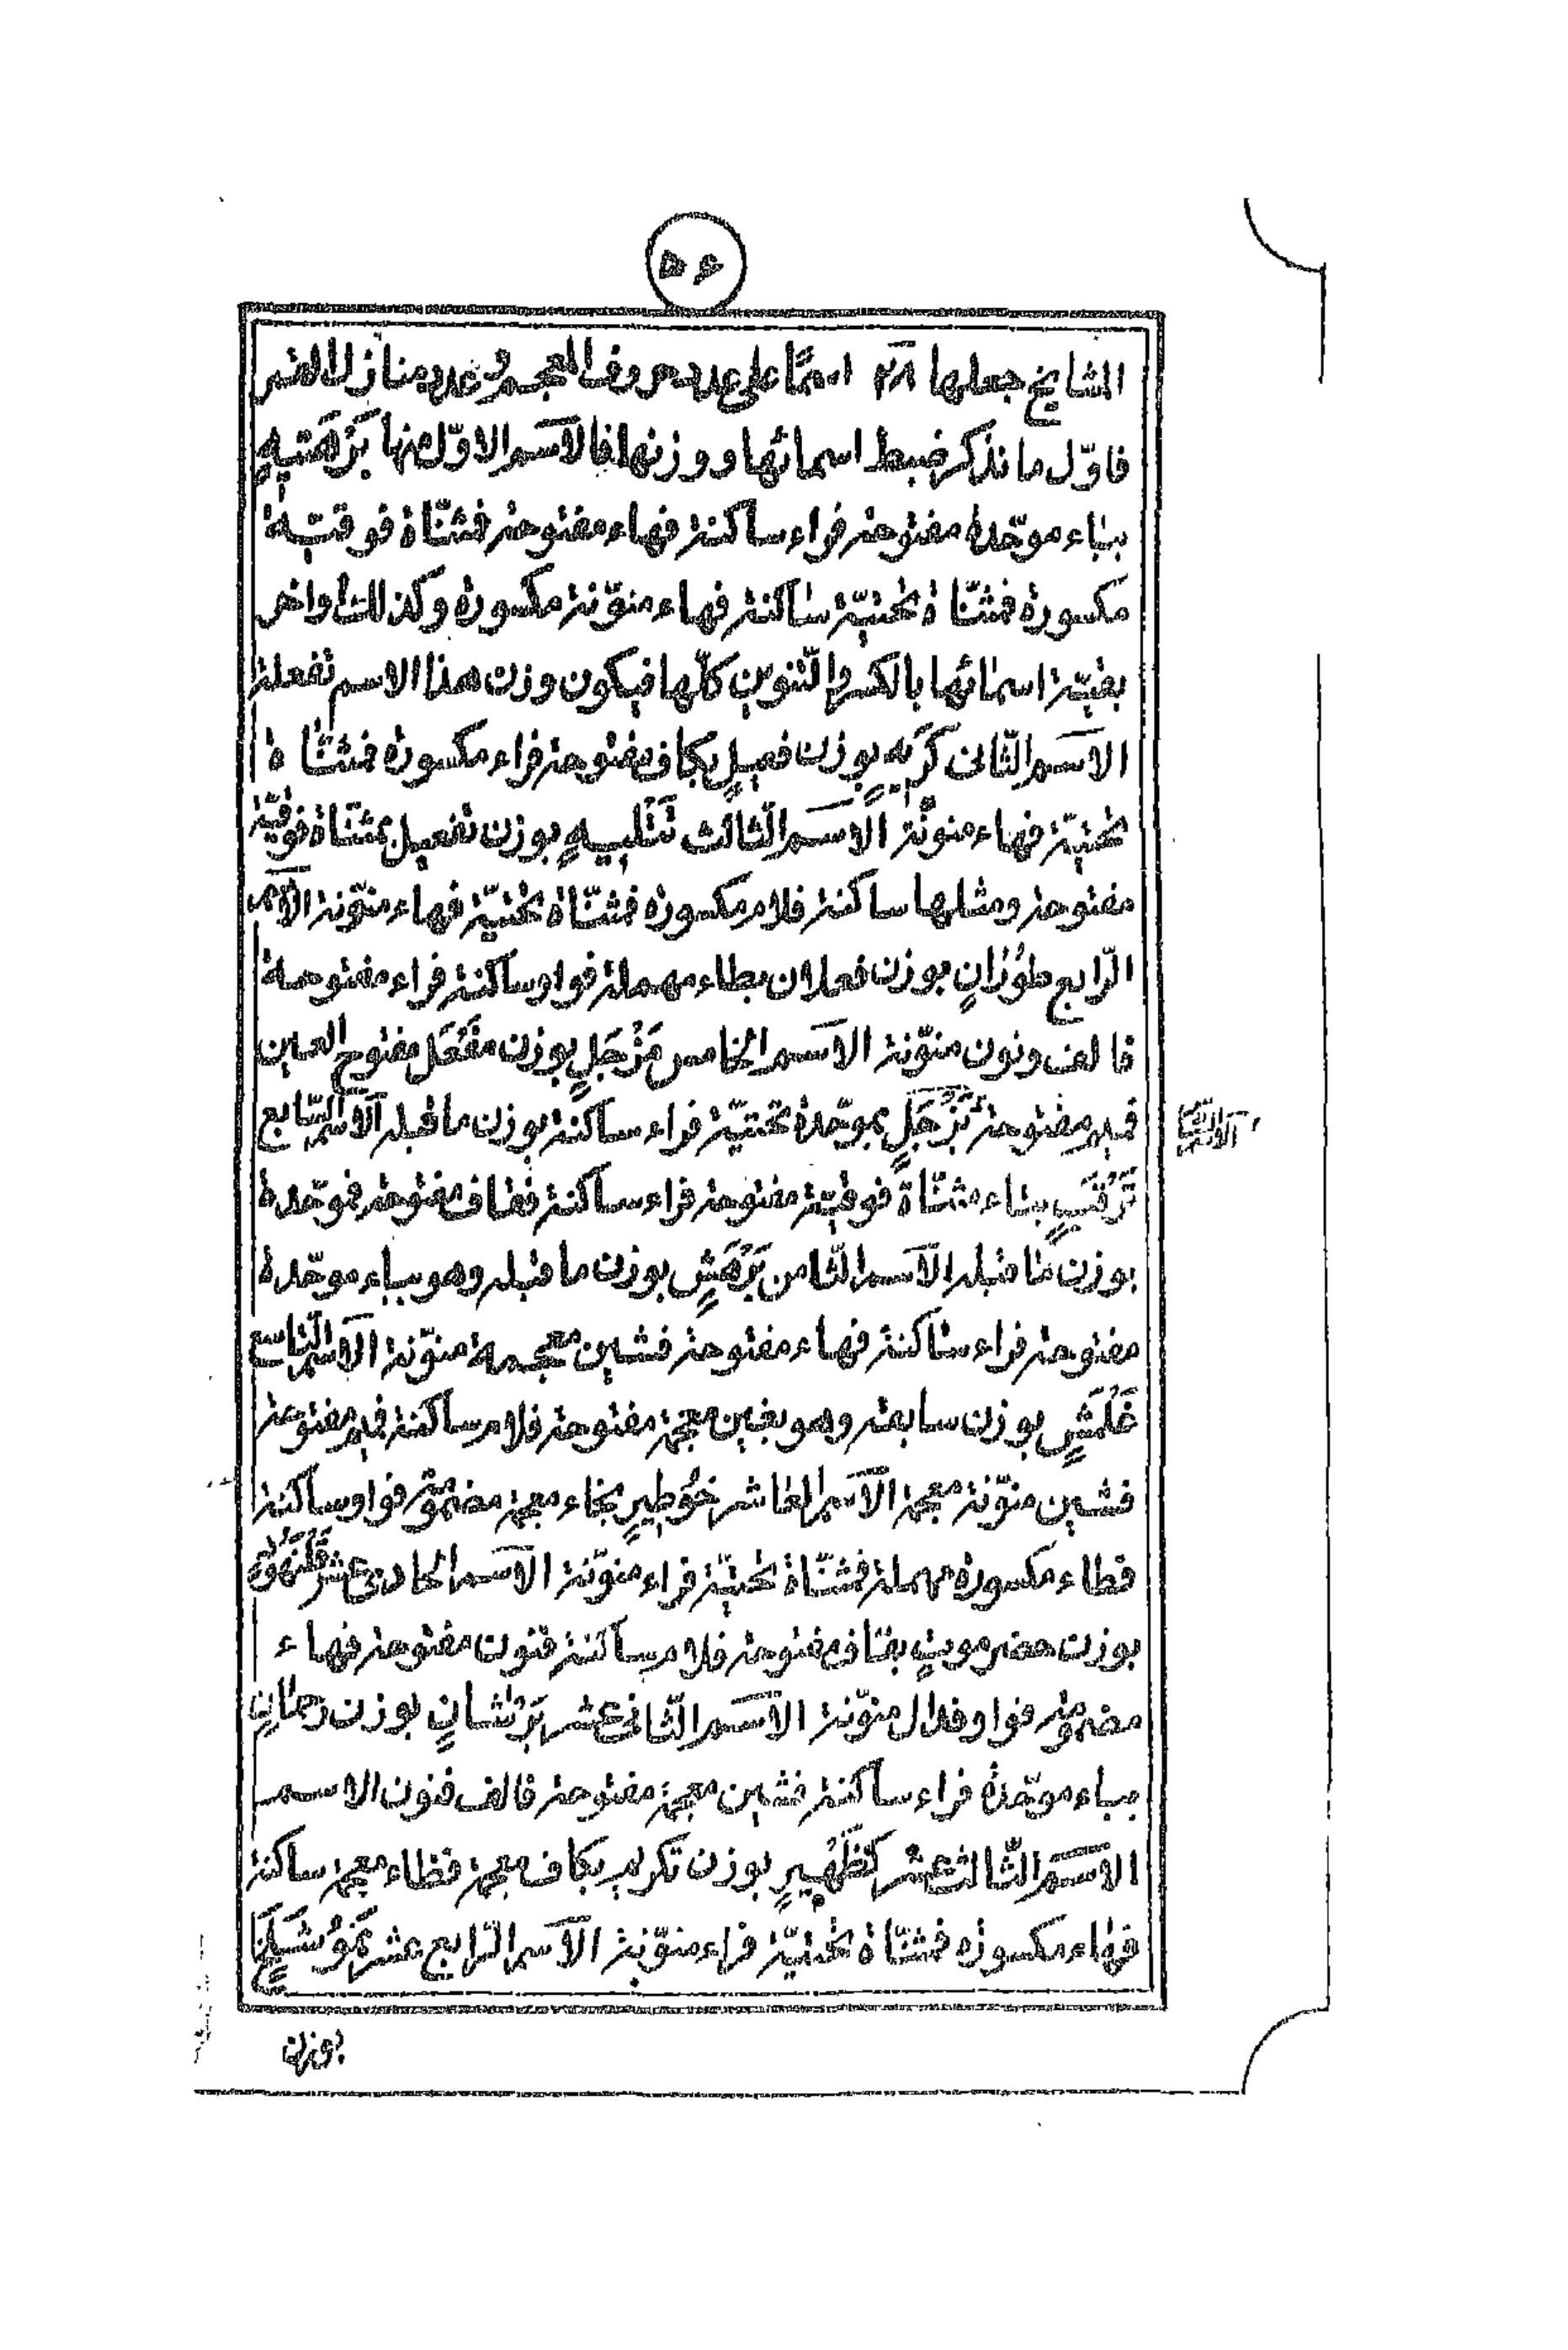 ۵۶
المشایخ جعلها ۲۸ اسمًا علی عدد حروف المعجم وعدد منازل القمر
فاوّل ما نذکر ضبط اسمائها ووزنها فالاسم الاوّل منها بَرْهَتیهٍ
بباء موحّدة مفتوحة فراء ساکنة فهاء مفتوحة فمثنّاة فوقیّة
مکسورة فمثنّاة تحتیّة ساکنة فهاء منوّنة مکسورة وکذلك اواخر
بقیّة اسمائها بالکسر والتّنوین کلّها فیکون وزن هذا الاسم تفعلة
الاسم الثّانی کَرِیهٍ بوزن فعیلٍ بکاف مفتوحة فراء مکسورة فمثنّاة
تحتیّة فهاء منونّة الاسم الثّالث تَتْلِیهٍ بوزن تفعیل بمثنّاة فوقیّة
مفتوحة ومثلها ساکنة فلام مکسورة فمثنّاة تحتیّة فهاء منوّنة الاسم
الرّابع طوْرَانٍ بوزن فعلان بطاء مهملة فواو ساکنة فراء مفتوحة
فالف ونون منوّنة الاسم الخامس مَزْجَلٍ بوزن مَفْعَل مفتوح العین
فمیم مفتوحة بَزْجَلٍ بموحّدة تحتیّة فراء ساکنة بوزن ما قبله الاسم السّابع
الاسم السّادس
تَرْقَبٍ بتاء مثنّاة فوقیّة مفتوحة فراء ساکنة فقاف مفتوحة فموحّدة
بوزن ما قبله الاسم الثّامن بَرْهَشٍ بوزن ما قبله وهو بباء موحّدة
مفتوحة فراء ساکنة فهاء مفتوحة فشین معجمة منوّنة الاسم التّاسع
غَلْمَشٍ بوزن سابقه وهو بغین معجمة مفتوحة فلام ساکنة فمیم مفتوحة
فشین منوّنة معجمة الاسم العاشر خُوْطِیرٍ بخاء معجمة مضمومة فواو ساکنة
فطاء مکسورة مهملة فمثنّاة تحتیّة فراء منوّنة الاسم الحادی عشر قَلْنَهُودٍ
بوزن حضرموتٍ بقاف مفتوحة فلام ساکنة فنون مفتوحة فهاء
مضمومة فواو فدال منوّنة الاسم الثّانی عشر بَرْشَانٍ بوزن رحمانٍ
بباء موحّدة فراء ساکنة فشین معجمة مفتوحة فالف فنون الاسم
الاسم الثّالث عشر کَظْهِیرٍ بوزن تکریم بکاف معجمة فظاء معجمة ساکنة
فهاء مکسورة فمثنّاة تحتیّة فراء منوّنة الاسم الرّابع عشر نَمُوشَلَخٍ
بوزن